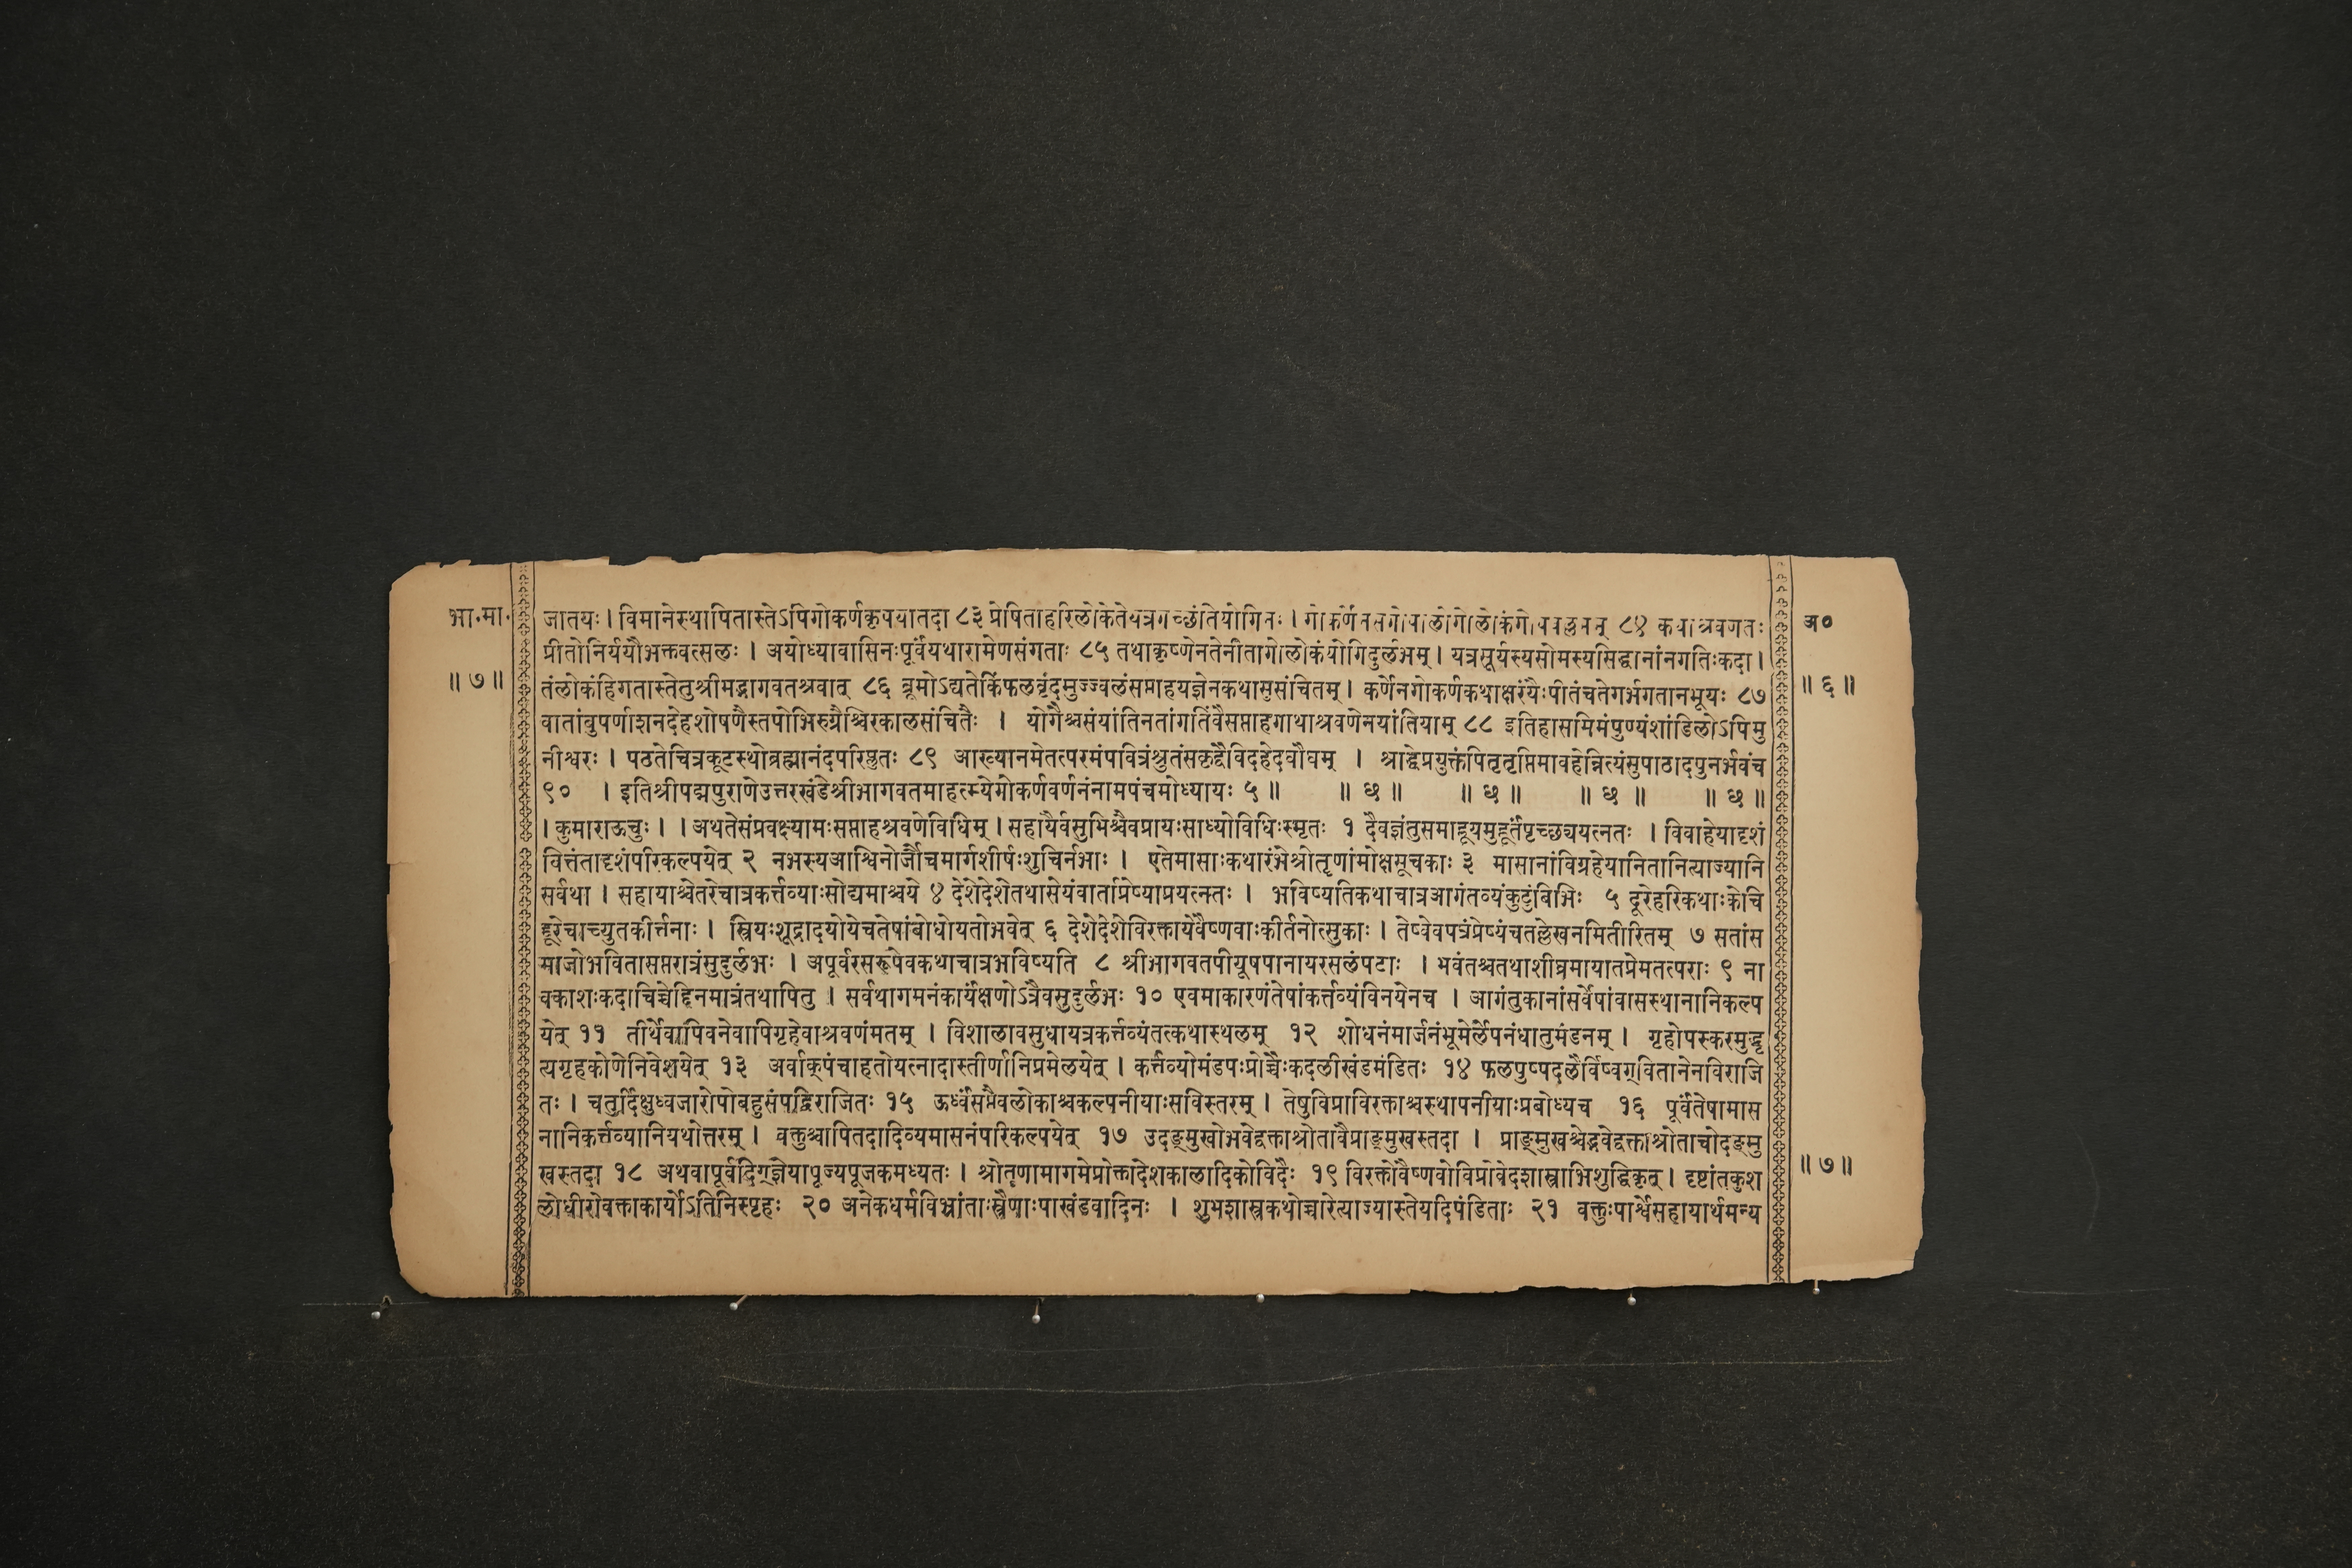 भा.मा. जातयः । विमानेस्थापितास्तेऽपिगोकर्णकृपयातदा ८३ प्रेषिताहरिलोकेतेयत्रगच्छंतियोगिनः । ८४ अ०
प्रीतोनिर्ययौभक्तवत्सलः । अयोध्यावासिनःपूर्वंयथारामेणसंगताः ८५ तथाकृष्णेनतेनीतागोलोकंयोगिदुर्लभम् । यत्रसूर्यस्यसोमस्यसिद्धानांनगतिःकदा ।
॥ ७ ॥ तंलोकंहिगतास्तेतुश्रीमद्भागवतश्रवात् ८६ ब्रूमोऽद्यतेकिंफलवृंदमुज्ज्वलंसप्ताहयज्ञेनकथासुसंचितम् । कर्णेनगोकर्णकथाक्षरंयैःपीतंचतेगर्भगतानभूयः ८७ ॥ ६ ॥
वातांबुपर्णाशनदेहशोषणैस्तपोभिरुग्रैश्चिरकालसंचितैः । योगैश्चसंयांतिनतांगतिंवैसप्ताहगाथाश्रवणेनयांतियाम् ८८ इतिहासमिमंपुण्यंशांडिलोऽपिमु
नीश्वरः । पठतेचित्रकूटस्थोब्रह्मानंदपरिप्लुतः ८९ आख्यानमेतत्परमंपवित्रंश्रुतंसकृद्वैविदहेदघौघम् । श्राद्धेप्रयुक्तंपितृतृप्तिमावहेन्नित्यंसुपाठादपुनर्भवंच
९० । इतिश्रीपद्मपुराणेउत्तरखंडेश्रीभागवतमाहत्म्येगोकर्णवर्णनंनामपंचमोध्यायः ५ ॥ ॥ छ ॥ ॥ छ ॥ ॥ छ ॥ ॥ छ ॥
। कुमाराऊचुः । । अथतेसंप्रवक्ष्यामःसप्ताहश्रवणेविधिम् । सहायैर्वसुभिश्चैवप्रायःसाध्योविधिःस्मृतः १ दैवज्ञंतुसमाहूयमुहूर्तंपृच्छ्ययत्नतः । विवाहेयादृशं
वित्तंतादृशंपरिकल्पयेत् २ नभस्यआश्विनोर्जौचमार्गशीर्षःशुचिर्नभाः । एतेमासाःकथारंभेश्रोतॄणांमोक्षसूचकाः ३ मासानांविग्रहेयानितानित्याज्यानि
सर्वथा । सहायाश्चेतरेचात्रकर्त्तव्याःसोद्यमाश्चये ४ देशेदेशेतथासेयंवार्ताप्रेष्याप्रयत्नतः । भविष्यतिकथाचात्रआगंतव्यंकुटुंबिभिः ५ दूरेहरिकथाःकेचि
द्दूरेचाच्युतकीर्त्तनाः । स्त्रियःशूद्रादयोयेचतेषांबोधोयतोभवेत् ६ देशेदेशेविरक्तायेवैष्णवाःकीर्तनोत्सुकाः । तेष्वेवपत्रंप्रेष्यंचतल्लेखनमितीरितम् ७ सतांस
माजोभवितासप्तरात्रंसुदुर्लभः । अपूर्वरसरूपेवकथाचात्रभविष्यति ८ श्रीभागवतपीयूषपानायरसलंपटाः । भवंतश्चतथाशीघ्रमायातप्रेमतत्पराः ९ ना
वकाशःकदाचिच्चेद्दिनमात्रंतथापितु । सर्वथागमनंकार्यंक्षणोऽत्रैवसुदुर्लभः १० एवमाकारणंतेषांकर्त्तव्यंविनयेनच । आगंतुकानांसर्वेषांवासस्थानानिकल्प
येत् ११ तीर्थेवापिवनेवापिगृहेवाश्रवणंमतम् । विशालावसुधायत्रकर्त्तव्यंतत्कथास्थलम् १२ शोधनंमार्जनंभूमेर्लेपनंधातुमंडनम् । गृहोपस्करमुद्धृ
त्यगृहकोणेनिवेशयेत् १३ अर्वाक्पंचाहतोयत्नादास्तीर्णानिप्रमेलयेत् । कर्त्तव्योमंडपःप्रोच्चैःकदलीखंडमंडितः १४ फलपुष्पदलैर्विष्वग्वितानेनविराजि
तः । चतुर्दिक्षुध्वजारोपोबहुसंपद्विराजितः १५ ऊर्ध्वंसप्तैवलोकाश्चकल्पनीयाःसविस्तरम् । तेषुविप्राविरक्ताश्चस्थापनीयाःप्रबोध्यच १६ पूर्वंतेषामास
नानिकर्त्तव्यानियथोत्तरम् । वक्तुश्चापितदादिव्यमासनंपरिकल्पयेत् १७ उदङ्मुखोभवेद्वक्ताश्रोतावैप्राङ्मुखस्तदा । प्राङ्मुखश्चेद्भवेद्वक्ताश्रोताचोदङ्मु
खस्तदा १८ अथवापूर्वदिग्ज्ञेयापूज्यपूजकमध्यतः । श्रोतॄणामागमेप्रोक्तादेशकालादिकोविदैः १९ विरक्तोवैष्णवोविप्रोवेदशास्त्राभिशुद्धिकृत् । दृष्टांतकुश ॥ ७ ॥
लोधीरोवक्ताकार्योऽतिनिस्पृहः २० अनेकधर्मविभ्रांताःस्त्रैणाःपाखंडवादिनः । शुभशास्त्रकथोच्चारेत्याज्यास्तेयदिपंडिताः २१ वक्तुःपार्श्वेसहायार्थमन्य